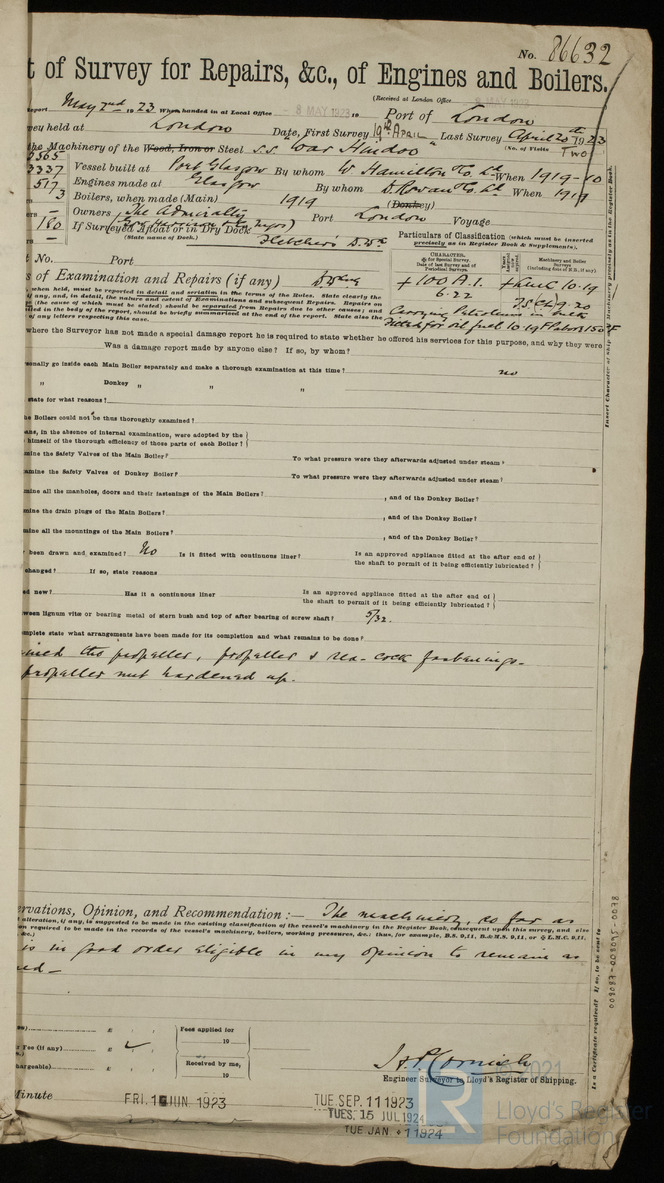 No. 86632
t of Survey for Repairs, &c., of Engines and Boilers.
(Received at London Office 8 MAY 1923
Report May 2nd 1923 When handed in at Local Office 8 MAY 1923 19 Port of London
vey held at London Date, First Survey 19th APRIL Last Survey April 20th 1923
(No. of Visits Two
the Machinery of the Wood, Iron or Steel S.S. "War Hindoo"
5565
3337 Vessel built at Port Glasgow By whom W Hamilton & Co. Ld When 1919-10
517 Engines made at Glasgow By whom D. Rowan & Co. Ld When 1919
3 Boilers, when made (Main) 1919 (Donkey)
Owners The Admiralty Port London Voyage
180 If Surveyed Afloat or in Dry Dock
(State name of Dock.) Fletcher's D. Dk
Particulars of Classification (which must be inserted
precisely as in Register Book & Supplements).
CHARACTER.
Machinery and Boiler
Surveys
+ 100 A.1. + LMC 10.19
6.22 T.S. CL 9.20
Carrying Petroleum in bulk
Fitted for oil fuel 10.19 F.P. above 150°F
t No. Port
s of Examination and Repairs (if any)
when held, must be reported in detail and seriatim in the terms of the Rules. State clearly the
if any, and, in detail, the nature and extent of Examinations and subsequent Repairs. Repairs on
(the cause of which must be stated) should be separated from Repairs due to other causes; and
iled in the body of the report, should be briefly summarised at the end of the report. State also the
of any letters respecting this case.
where the Surveyor has not made a special damage report he is required to state whether he offered his services for this purpose, and why they were
Was a damage report made by anyone else? If so, by whom?
sonally go inside each Main Boiler separately and make a thorough examination at this time? no
" Donkey " " "
state for what reasons?
he Boilers could not be thus thoroughly examined?
ans, in the absence of internal examination, were adopted by the
himself of the thorough efficiency of those parts of each Boiler?
mine the Safety Valves of the Main Boiler? To what pressure were they afterwards adjusted under steam?
amine the Safety Valves of Donkey Boiler? To what pressure were they afterwards adjusted under steam?
mine all the manholes, doors and their fastenings of the Main Boilers? , and of the Donkey Boiler?
mine the drain plugs of the Main Boilers? , and of the Donkey Boiler?
mine all the mountings of the Main Boilers? , and of the Donkey Boiler?
been drawn and examined? No Is it fitted with continuous liner? Is an approved appliance fitted at the after end of
the shaft to permit of it being efficiently lubricated?
changed? If so, state reasons
ed new? Has it a continuous liner Is an approved appliance fitted at the after end of
the shaft to permit of it being efficiently lubricated?
ween lignum vitæ or bearing metal of stern bush and top of after bearing of screw shaft? 5/32.
mplete state what arrangements have been made for its completion and what remains to be done?
ined the propeller, propeller & sea-cock fastenings.
propeller nut hardened up.
ervations, Opinion, and Recommendation:— The machinery, so far as
alteration, if any, is suggested to be made in the existing classification of the vessel's machinery in the Register Book, consequent upon this survey, and also
on required to be made in the records of the vessel's machinery, boilers, working pressures, &c.: thus, for example, B.S. 9,11, B.&M.S. 9,11, or L.M.C. 9,11,
&c.)
is in good order eligible in my opinion to remain as
ed—
£ Fees applied for
r Fee (if any) £ 19
hargeable) £ Received by me,
19
Engineer Surveyor to Lloyd's Register of Shipping.
Minute FRI. 1 JUN 1923 TUE. SEP. 11 1923
TUES. 15 JUL 1924
TUE JAN 1 1924
© 2021
LR
Lloyd's Register
Foundation
Insert Character of Ship & Machinery precisely as in the Register Book.
Is a Certificate required? If so, to be sent to
009087-009095-0078